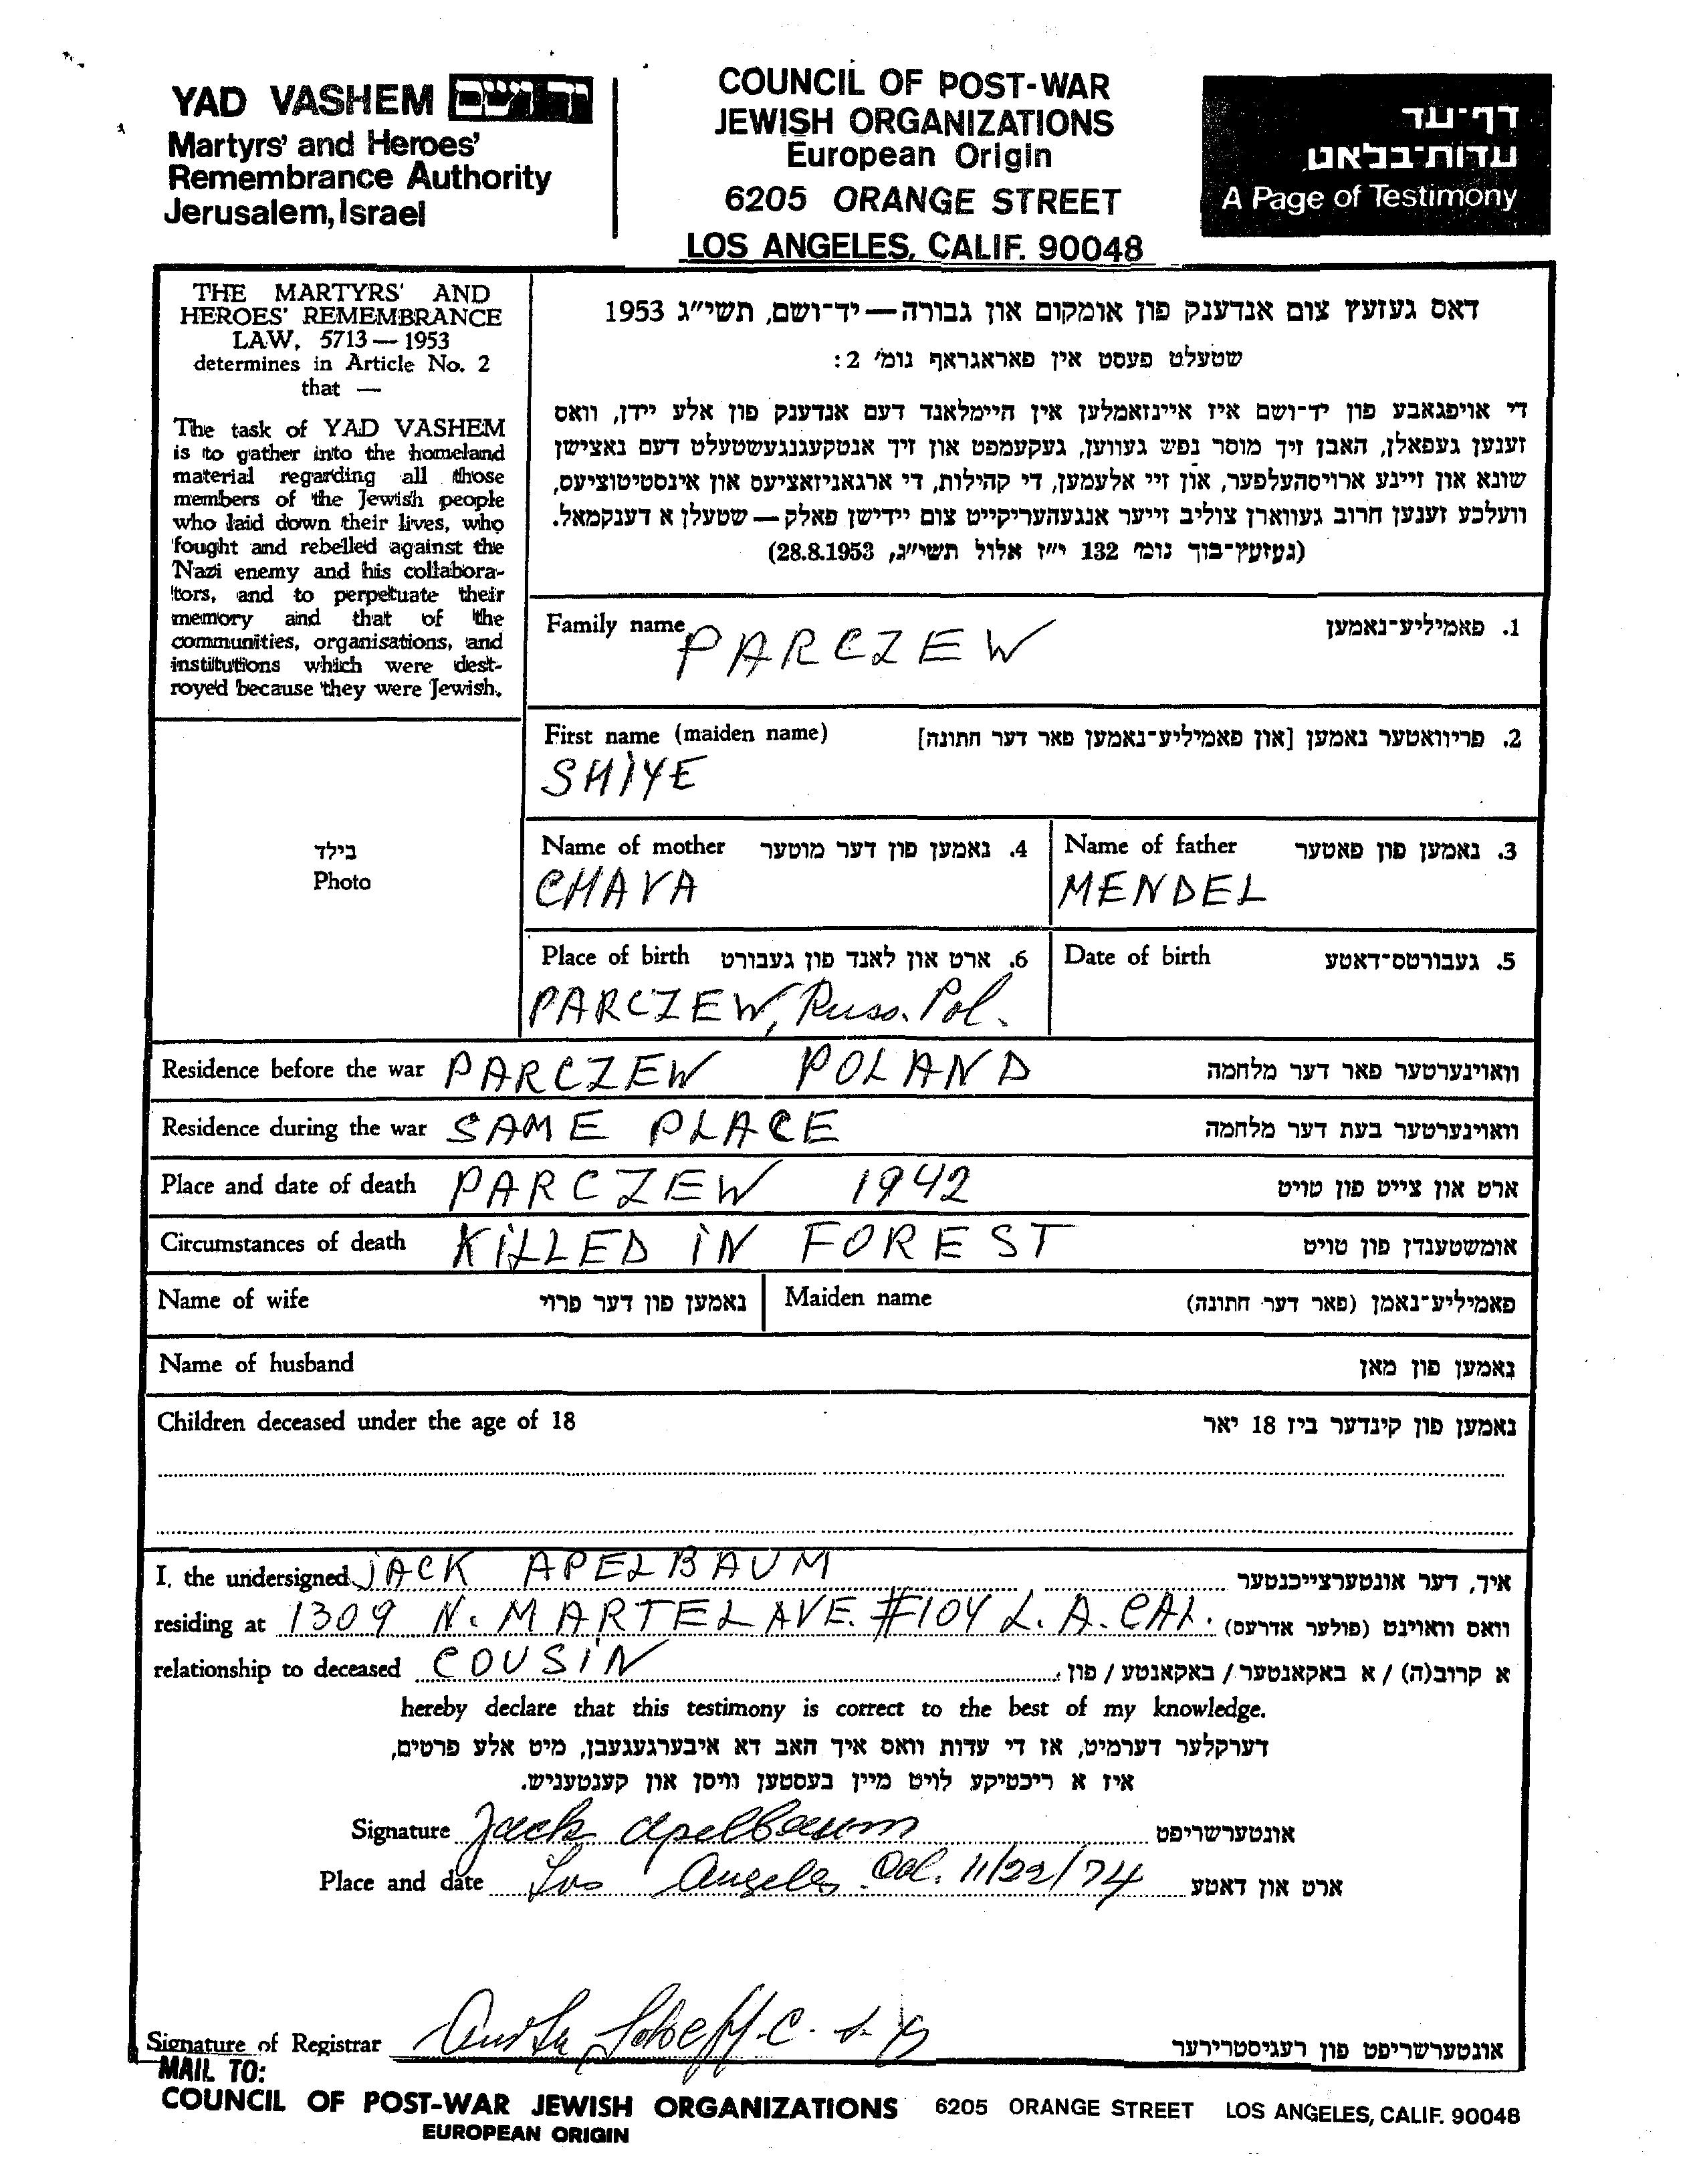 YAD VASHEM יד ושם
Martyrs' and Heroes'
Remembrance Authority
Jerusalem, Israel
COUNCIL OF POST-WAR
JEWISH ORGANIZATIONS
European Origin
6205 ORANGE STREET
LOS ANGELES, CALIF. 90048
דף-עד
עדות-בלאט
A Page of Testimony
THE MARTYRS' AND
HEROES' REMEMBRANCE
LAW, 5713—1953
determines in Article No. 2
that —
The task of YAD VASHEM
is to gather into the homeland
material regarding all those
members of the Jewish people
who laid down their lives, who
fought and rebelled against the
Nazi enemy and his collabora-
tors, and to perpetuate their
memory and that of the
communities, organisations, and
institutions which were dest-
royed because they were Jewish.
דאס געזעץ צום אנדענק פון אומקום און גבורה — יד-ושם, תשי"ג 1953
שטעלט פעסט אין פאראגראף נומ' 2:
די אויפגאבע פון יד-ושם איז איינזאמלען אין היימלאנד דעם אנדענק פון אלע יידן, וואס
זענען געפאלן, האבן זיך מוסר נפש געווען, געקעמפט און זיך אנטקעגנגעשטעלט דעם נאצישן
שונא און זיינע ארויסהעלפער, און זיי אלעמען, די קהילות, די ארגאניזאציעס און אינסטיטוציעס,
וועלכע זענען חרוב געווארן צוליב זייער אנגעהעריקייט צום יידישן פאלק — שטעלן א דענקמאל.
(געזעץ-בוך נומ' 132 י"ז אלול תשי"ג, 28.8.1953)
Family name PARCZEW 1. פאמיליע-נאמען
First name (maiden name) 2. פריוואטער נאמען [און פאמיליע-נאמען פאר דער חתונה]
SHIYE
Name of mother 4. נאמען פון דער מוטער Name of father 3. נאמען פון פאטער
CHAVA MENDEL
Place of birth 6. ארט און לאנד פון געבורט Date of birth 5. געבורטס-דאטע
PARCZEW, Russ. Pol.
בילד
Photo
Residence before the war PARCZEW POLAND וואוינערטער פאר דער מלחמה
Residence during the war SAME PLACE וואוינערטער בעת דער מלחמה
Place and date of death PARCZEW 1942 ארט און צייט פון טויט
Circumstances of death KILLED IN FOREST אומשטענדן פון טויט
Name of wife נאמען פון דער פרוי Maiden name פאמיליע-נאמן (פאר דער חתונה)
Name of husband נאמען פון מאן
Children deceased under the age of 18 נאמען פון קינדער ביז 18 יאר
I, the undersigned JACK APELBAUM איד, דער אונטערצייכנטער
residing at 1309 N. MARTEL AVE. #104 L.A. CAL. וואס וואוינט (פולער אדרעס)
relationship to deceased COUSIN א קרוב(ה) / א באקאנטער / באקאנטע / פון
hereby declare that this testimony is correct to the best of my knowledge.
דערקלער דערמיט, אז די עדות וואס איך האב דא איבערגעגעבן, מיט אלע פרטים,
איז א ריכטיקע לויט מיין בעסטען וויסן און קענטעניש.
Signature Jack Apelbaum אונטערשריפט
Place and date Los Angeles Cal. 11/22/74 ארט און דאטע
Signature of Registrar אונטערשריפט פון רעגיסטרירער
MAIL TO:
COUNCIL OF POST-WAR JEWISH ORGANIZATIONS 6205 ORANGE STREET LOS ANGELES, CALIF. 90048
EUROPEAN ORIGIN